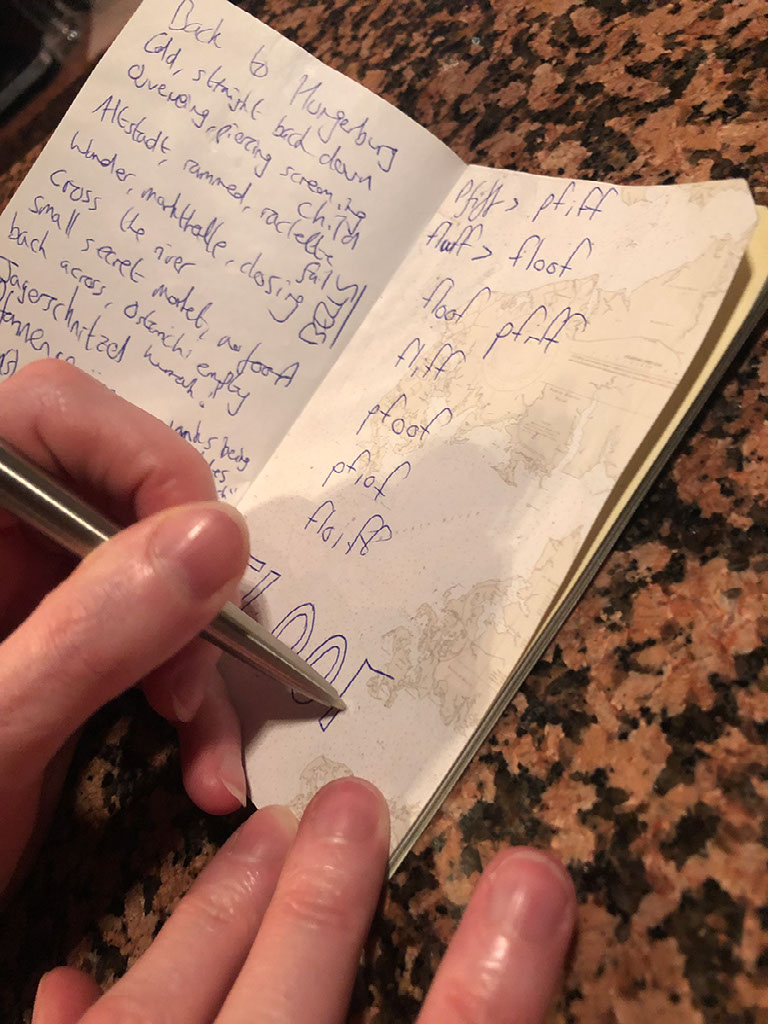 Back to Hungerburg
Cold, straight back down
Quivering, piercing screaming child
Altstadt, rammed, raclette fail
Wander, markthalle, closing
Cross the river
Small secret market, no food
back across, Osterich: empty
Jagerschnitzel hurrah!
ranks being
> pfiff
fluff > floof
floof pfiff
fliff
pfoof
pfiof
floiff
FLOOF